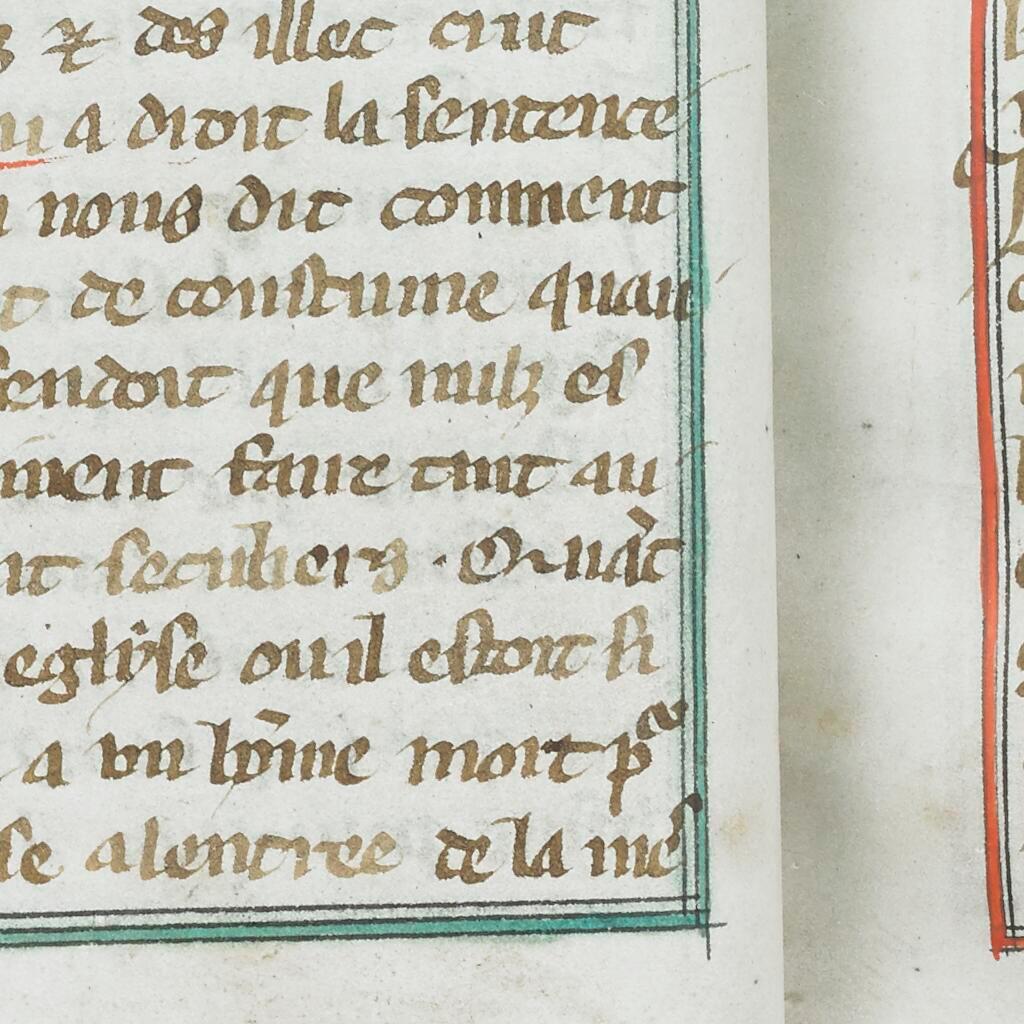 ⁊ des illec crut
u a droit la sentence
nous dit comment
de coustume quau
sendoit que nulz es
ment faire tout au
nt seculiers · Quãt
eglyse ou il estoit si
a vn hõme mort
se a lentree de la mes